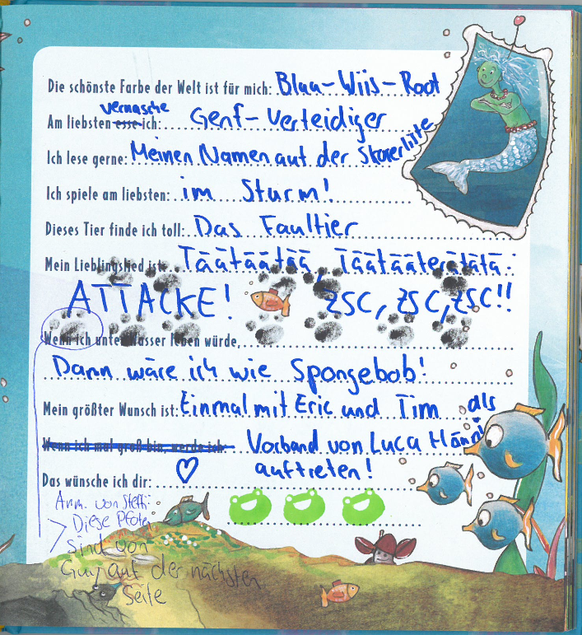 Die schönste Farbe der Welt ist für mich: Blau-Wiis-Root
Am liebsten esse vernasche ich: Genf-Verteidiger
Ich lese gerne: Meinen Namen auf der Skorerliste
Ich spiele am liebsten: im Sturm!
Dieses Tier finde ich toll: Das Faultier
Mein Lieblingslied ist: Täätäätää, Täätääterätätä:
ATTACKE! ZSC, ZSC, ZSC!!
Wenn ich unter Wasser leben würde,
Dann wäre ich wie Spongebob!
Mein größter Wunsch ist: Einmal mit Eric und Tim als
Wenn ich mal groß bin, werde ich: Vorband von Luca Hänni
auftreten!
Das wünsche ich dir: ♡
Anm. von Steffi:
Diese Pfoten
sind von
Guy auf der nächsten
Seite